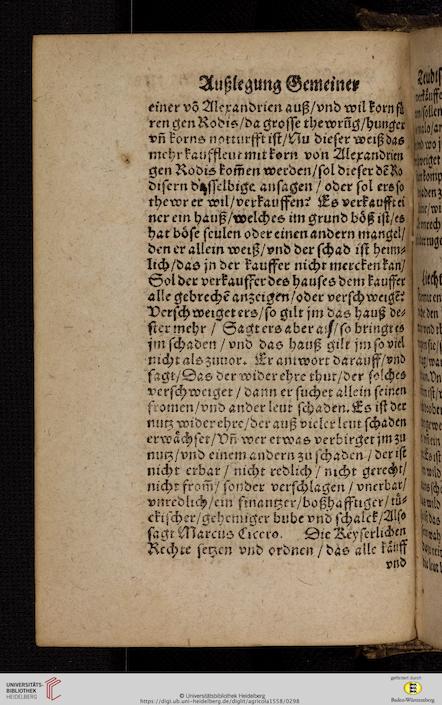 Außlegung Gemeiner
einer võ Alexandrien auß/vnd wil korn fü
ren gen Rodis/da grosse thewrũg/hunger
vñ korns notturfft ist/Nu dieser weiß das
mehr kauffleut mit korn von Alexandrien
gen Rodis kom̃en werden/sol dieser dẽ Ro
disern dasselbige ansagen / oder sol ers so
thewr er wil/verkauffen? Es verkaufft ei
ner ein hauß/welches im grund böß ist/es
hat böse seulen oder einen andern mangel/
den er allein weiß/vnd der schad ist heim-
lich/das jn der kauffer nicht mercken kan/
Sol der verkauffer des hauses dem kauffer
alle gebrechẽ anzeigen/oder verschweigẽ?
Verschweiget ers/so gilt jm das hauß de-
ster mehr / Sagt ers aber an/so bringt es
jm schaden / vnd das hauß gilt jm so viel
nicht als zuuor. Er antwort darauff/vnd
sagt/Das der wider ehre thut/der solches
verschweiget / dann er suchet allein seinen
fromen/vnd ander leut schaden. Es ist der
nutz wider ehre/der auß vieler leut schaden
erwächset/Vñ wer etwas verbirget jm zu
nutz/vnd einem andern zu schaden / der ist
nicht erbar / nicht redlich / nicht gerecht/
nicht from̃/ sonder verschlagen / vnerbar/
vnredlich/ein finantzer/boßhafftiger/tü-
ckischer/geheimiger bube vnd schalck/Also
sagt Marcus Cicero. Die Keyserlichen
Rechte setzen vnd ordnen / das alle käuff
vnd
UNIVERSITÄTS-
BIBLIOTHEK
HEIDELBERG
© Universitätsbibliothek Heidelberg
https://digi.ub.uni-heidelberg.de/diglit/agricola1558/0298
gefördert durch
Baden-Württemberg